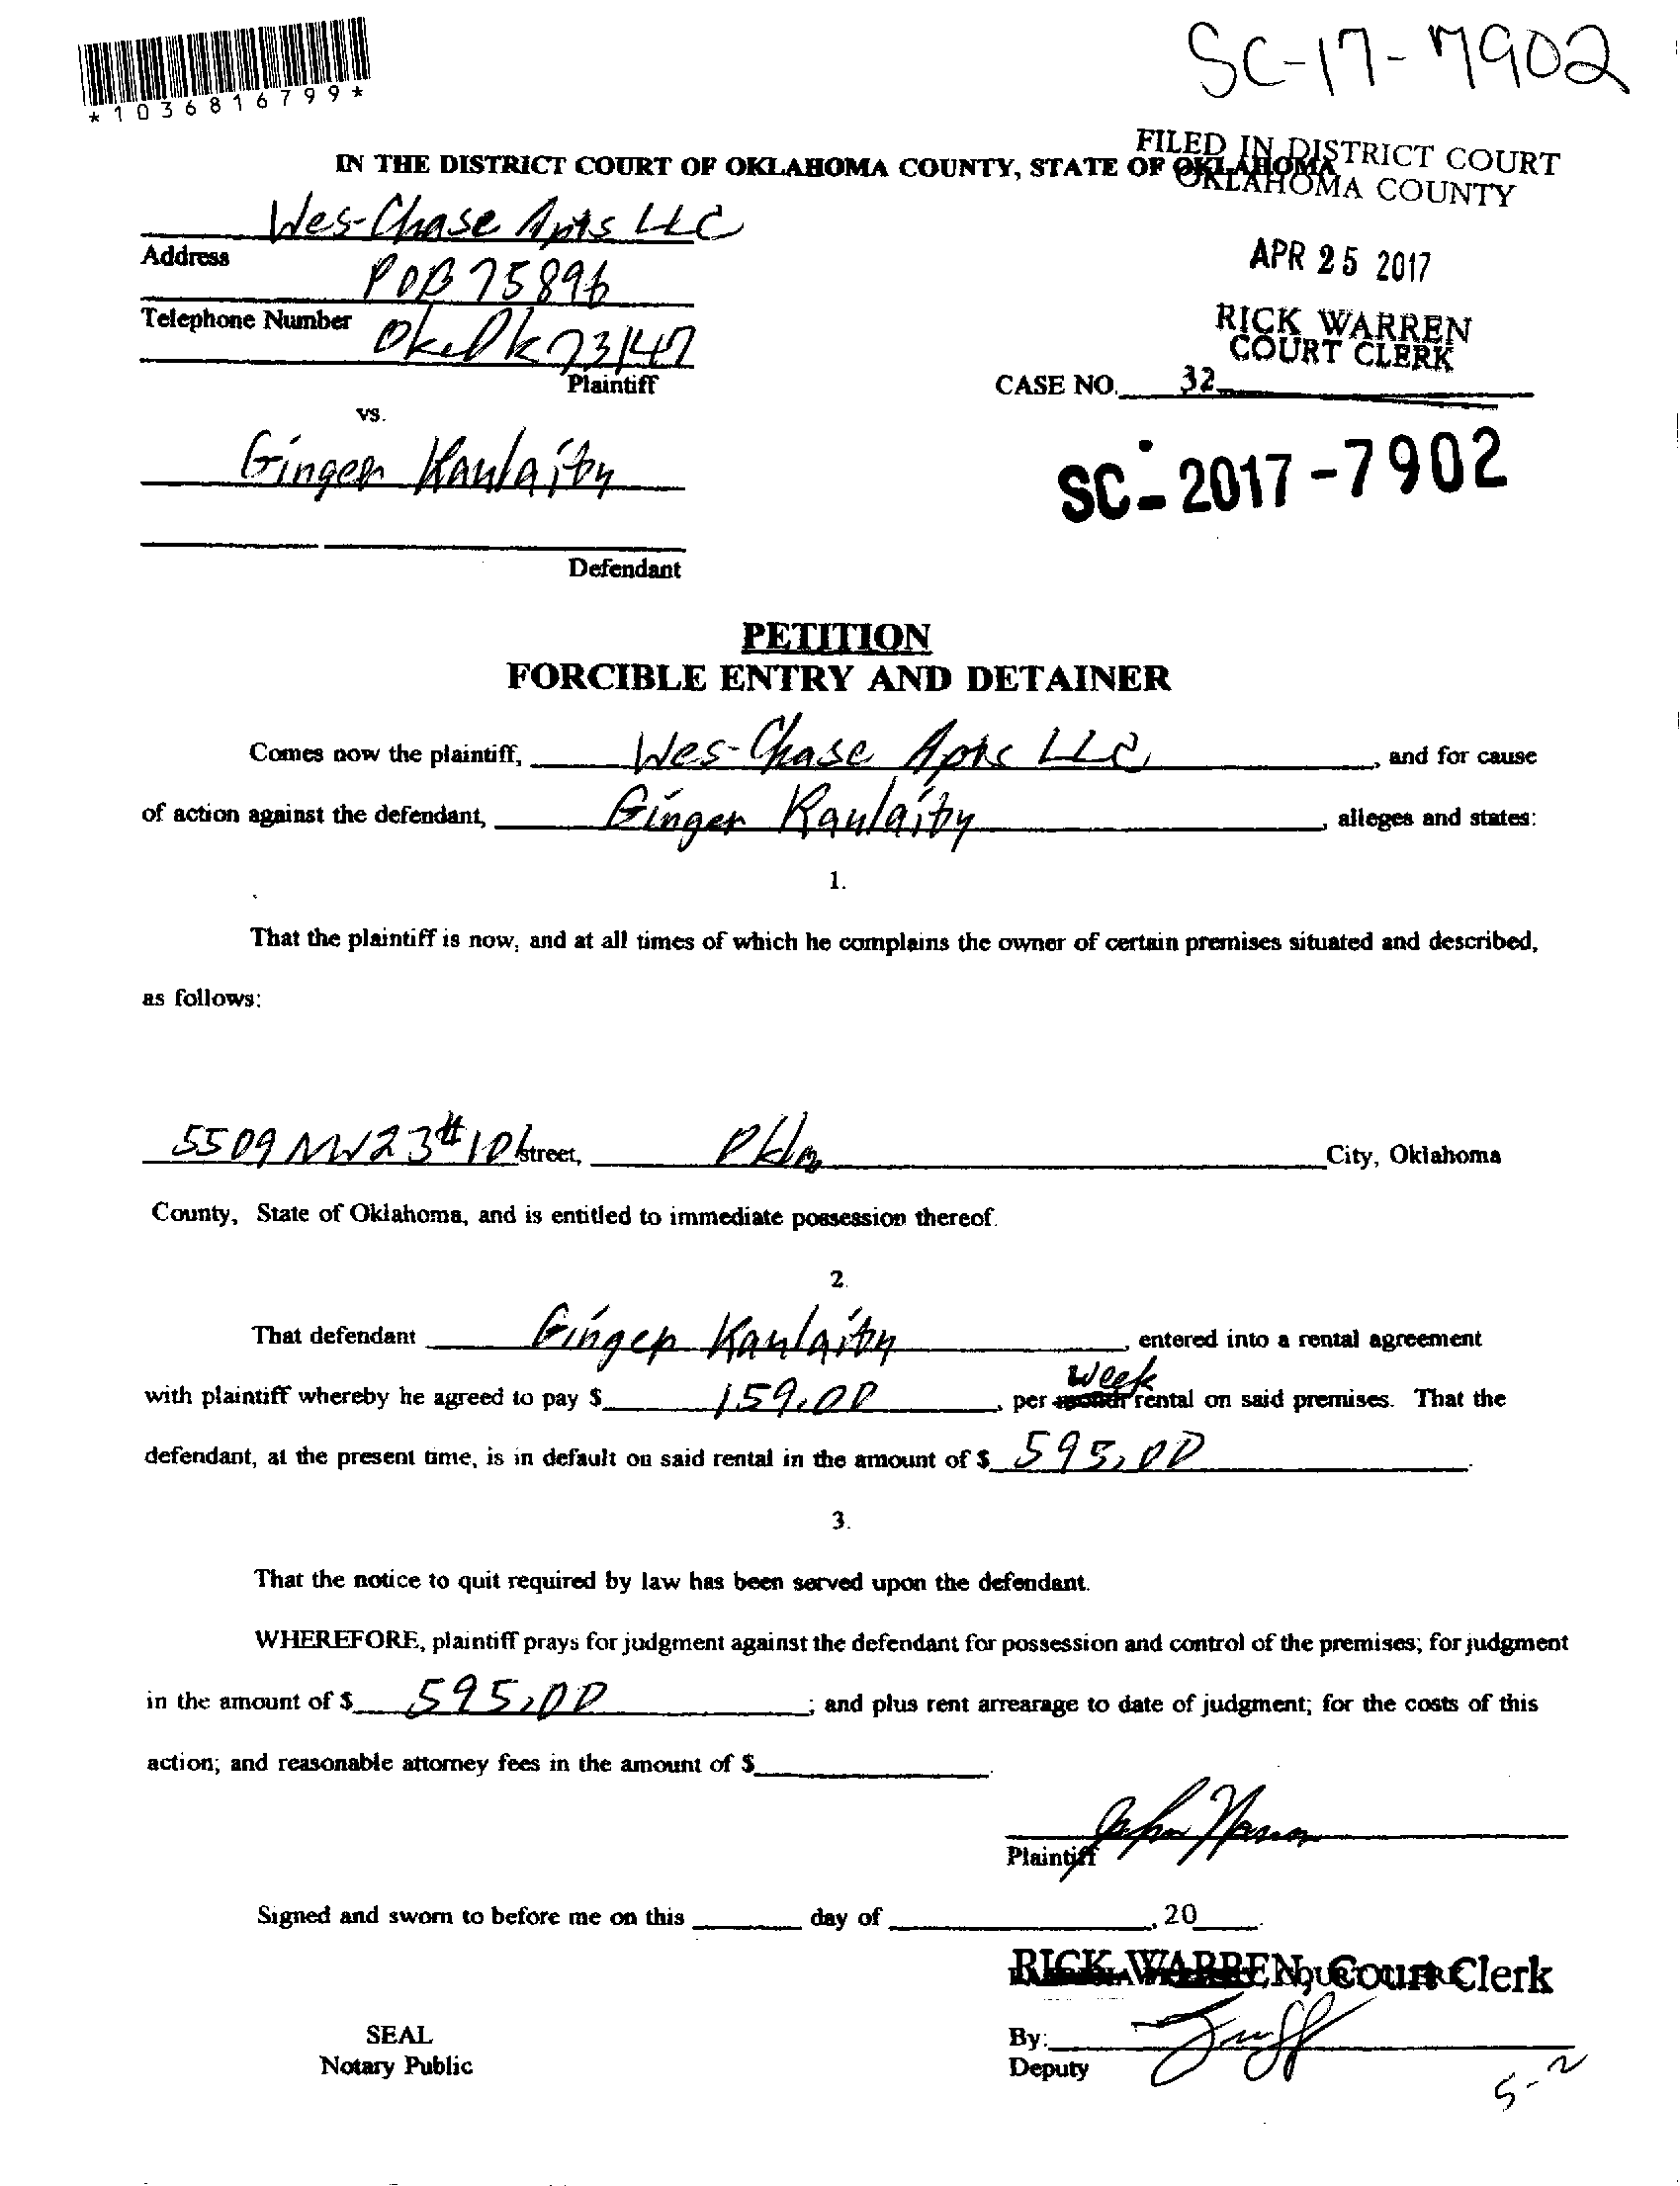 SC-17-7902
*1036816799*
FILED IN DISTRICT COURT
OKLAHOMA COUNTY
IN THE DISTRICT COURT OF OKLAHOMA COUNTY, STATE OF OKLAHOMA
Wes-Chase Apts LLC
Address
POB 75896
APR 25 2017
Telephone Number
Okc Ok 73147
RICK WARREN
COURT CLERK
Plaintiff
CASE NO. 32
vs.
Ginger Kaulaity
SC-2017-7902
Defendant
PETITION
FORCIBLE ENTRY AND DETAINER
Comes now the plaintiff, Wes-Chase Apts LLC, and for cause
of action against the defendant, Ginger Kaulaity, alleges and states:
1.
That the plaintiff is now, and at all times of which he complains the owner of certain premises situated and described,
as follows:
5509 NW 23 # street, Okla City, Oklahoma
County, State of Oklahoma, and is entitled to immediate possession thereof.
2.
That defendant Ginger Kaulaity, entered into a rental agreement
with plaintiff whereby he agreed to pay $ 159.00, per month week rental on said premises. That the
defendant, at the present time, is in default on said rental in the amount of $ 595.00.
3.
That the notice to quit required by law has been served upon the defendant.
WHEREFORE, plaintiff prays for judgment against the defendant for possession and control of the premises; for judgment
in the amount of $ 595.00; and plus rent arrearage to date of judgment; for the costs of this
action; and reasonable attorney fees in the amount of $ .
John
Plaintiff
Signed and sworn to before me on this day of , 20 .
RICK WARREN, Court Clerk
SEAL
Notary Public
By:
Deputy
5-2